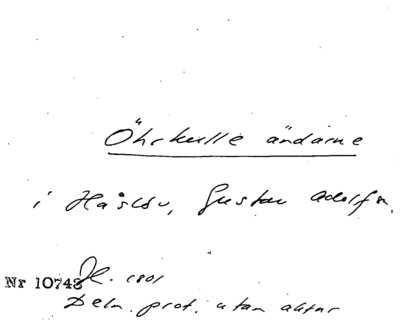 Öhrkulle ändarne
i Håslöv, Gustav Adolfs.
Nr 10748 H. 1801
Deln. prot. utan aktnr